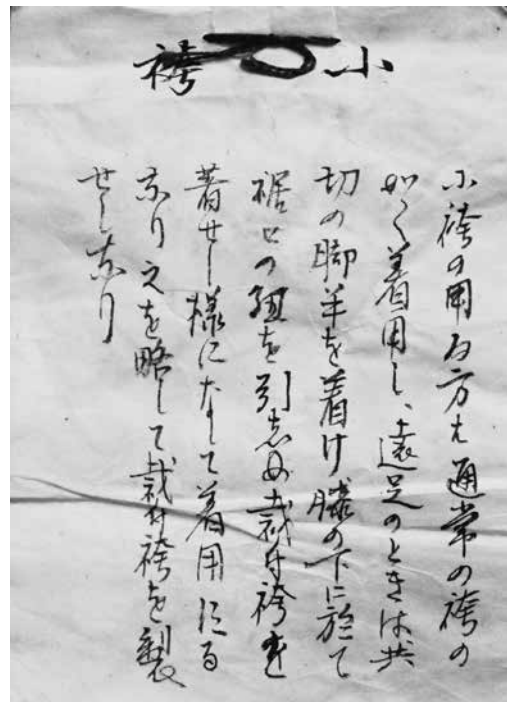 小袴
小袴の用る方は通常の袴の
如く着用し、遠足のときは共
切の脚半を着け膝の下に於て
裾との紐を引しめ裁付袴を
着せし様になして着用にる
なり之を略して裁付袴を製
せしなり